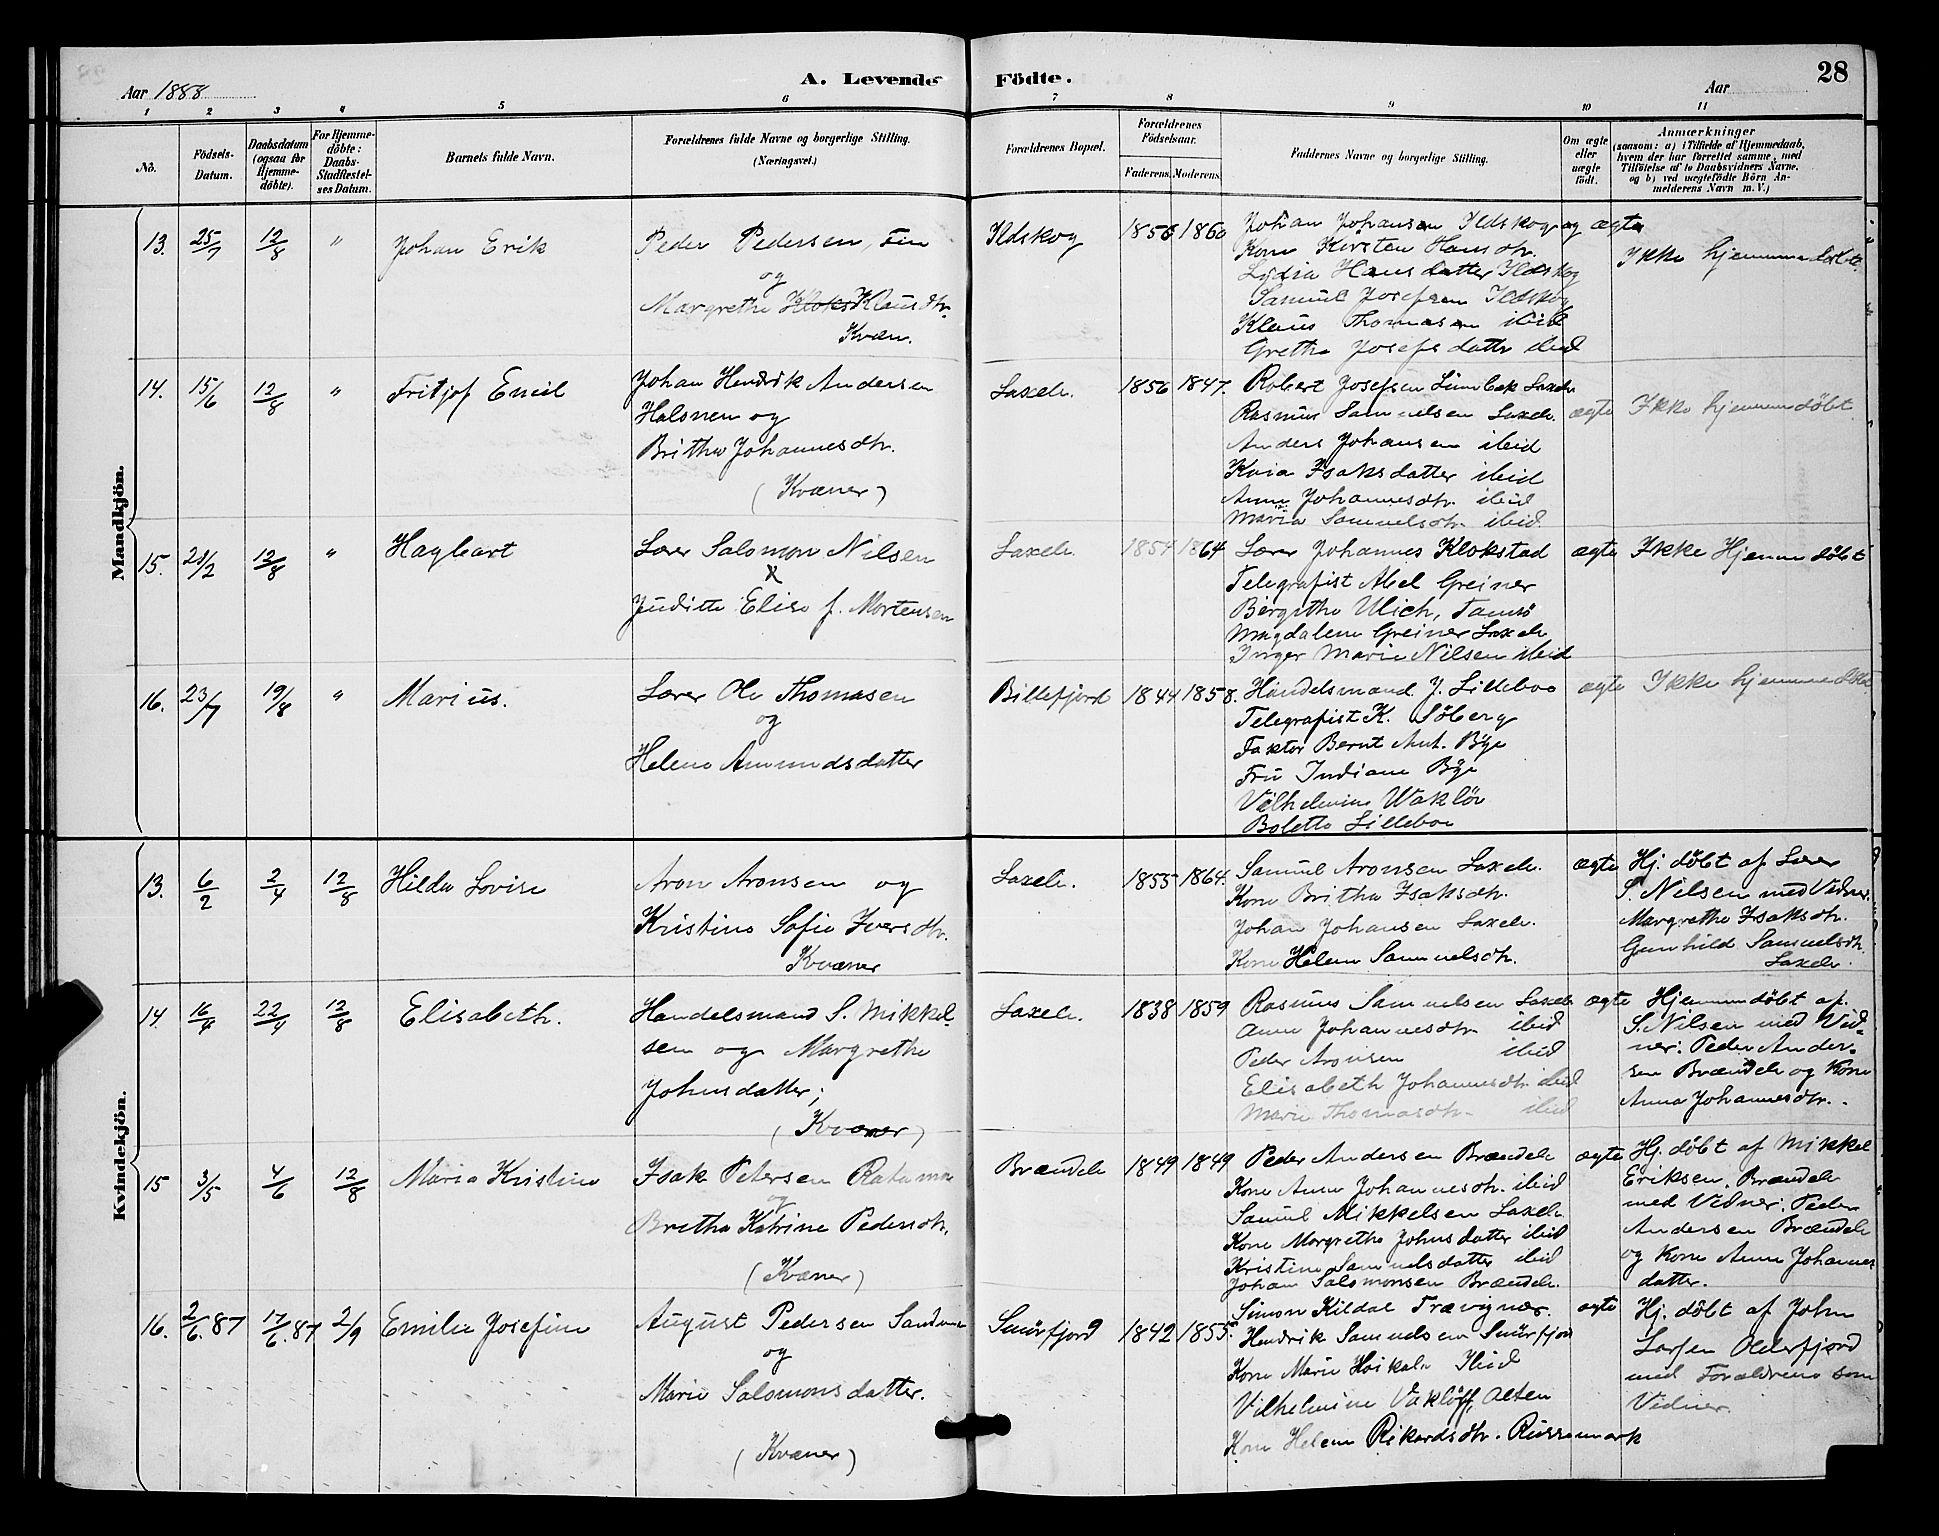 Aar 1888
A. Levende Födte.
Aar
28
1 2 3 4 5 6 7 8 9 10 11
No.
Födsels-Datum.
Daabsdatum (ogsaa for Hjemme-döbte).
For Hjemme-döbte: Daabs-Stadfæstel-ses Datum.
Barnets fulde Navn.
Forældrenes fulde Navne og borgerlige Stilling. (Næringsvei.)
Forældrenes Bopæl.
Forældrenes Födselsaar.
Faderens. Moderens.
Faddernes Navne og borgerlige Stilling.
Om ægte eller uægte født.
Anmærkninger
(saasom: a) i Tilfælde af Hjemmedaab,
hvem der har forrettet samme, med
Tilföielse af to Daabsvidners Navne,
og b) ved uægtefödte Börn An-
melderens Navn m. V.)
Mandkjön.
13. 25/7 12/8 " Johan Erik
Peder Pedersen, Fin
og
Margrethe Klaus Klausdtr.
Kvæn.
Ildskog 1856 1860
Johan Johansen Ildskog og
Kone Kirsten Hansdtr.
Lydia Hansdatter Ildskog
Samuel Josefsen Ildskog
Klaus Thomasen ibid
Grethe Josefsdatter ibid
ægte
Ikke hjemmedøbt.
14. 15/6 12/8 " Fritjof Emil
Johan Hendrik Andersen
Halonen og
Britha Johannesdtr.
(Kvæner)
Laxelv. 1856 1847.
Robert Josefsen Laxelv
Rasmus Samuelsen Laxelv.
Anders Johansen ibid
Kaia Isaksdatter ibid
Anna Johannesdtr. ibid
Maria Samuelsdtr. ibid
ægte
Ikke hjemmedøbt
15. 28/2 12/8 " Hagbart
Lærer Salomon Nilsen
x
Judithe Elise f. Mortensen
Laxelv. 1854 1864
Lærer Johannes Klokstad
Telegrafist Abel Greiner
Bergithe Ulich, Tamsø
Magdalene Greiner Laxelv
Inger Marie Nilsen ibid
ægte
Ikke Hjemmedöbt
16. 23/7 19/8 " Marius.
Lærer Ole Thomasen
og
Helene Amundsdatter
Billefjord 1844 1858.
Handelsmand J. Lilleboe
Telegrafist K. Söberg
Faktor Bernt Ant. Bye
Fru Indiane Bye
Vilhelmine Waklöv
Bolette Lilleboe
ægte
Ikke hjemmedöbt
Kvindekjön.
13. 6/2 2/4 12/8 Hilda Lovise
Aron Aronsen og
Kristine Sofie Iversdtr.
Kvæner
Laxelv. 1855 1864.
Samuel Aronsen Laxelv.
Kone Britha Isaksdtr.
Johan Johansen Laxelv.
Kone Helene Samuelsdtr.
ægte
Hj. döbt af Lærer
S. Nilsen med Vidner.
Margrethe Isaksdtr.
Gunhild Samuelsdtr.
Laxelv.
14. 16/4 22/4 12/8 Elisabeth.
Handelsmand S. Mikkel-
sen og Margrethe
Johnsdatter;
(Kvæner)
Laxelv. 1838 1859
Rasmus Samuelsen Laxelv
Anne Johannesdtr. ibid
Peder Aronsen ibid
Elisabeth Johannesdtr. ibid
Marie Thomasdtr. ibid
ægte
Hjemmedöbt af.
S. Nilsen med Vid-
ner: Peder Ander-
sen Brændelv og Kone
Anna Johannesdtr.
15 3/5 4/6 12/8 Maria Kristine
Isak Petersen
og
Bretha Katrine Pedersdtr.
(Kvæner)
Brændelv 1849 1849
Peder Andersen Brændelv
Kone Anna Johannesdtr. ibid
Samuel Mikkelsen Laxelv
Kone Margrethe Johnsdatter ibid
Kristine Samuelsdatter ibid
Johan Salomonsen Brændelv.
ægte
Hj. döbt af Mikkel
Eriksen, Brændelv
med Vidner: Peder
Andersen Brændelv
og Kone Anna Johannes
datter.
16. 2/6. 87 17/6. 87 2/9 Emilie Josefine
August Pedersen
og
Marie Salomonsdatter.
(Kvæner)
Smörfjord 1842 1855.
Simon Kildal Trævignæs.
Hendrik Samuelsen Smörfjord
Kone Marie Ibid
Vilhelmine Vaklöff, Alten
Kone Helene Rikardsdtr. Russemark
ægte
Hj. döbt af John
Larsen Olderfjord
med Forældrene som
Vidner.